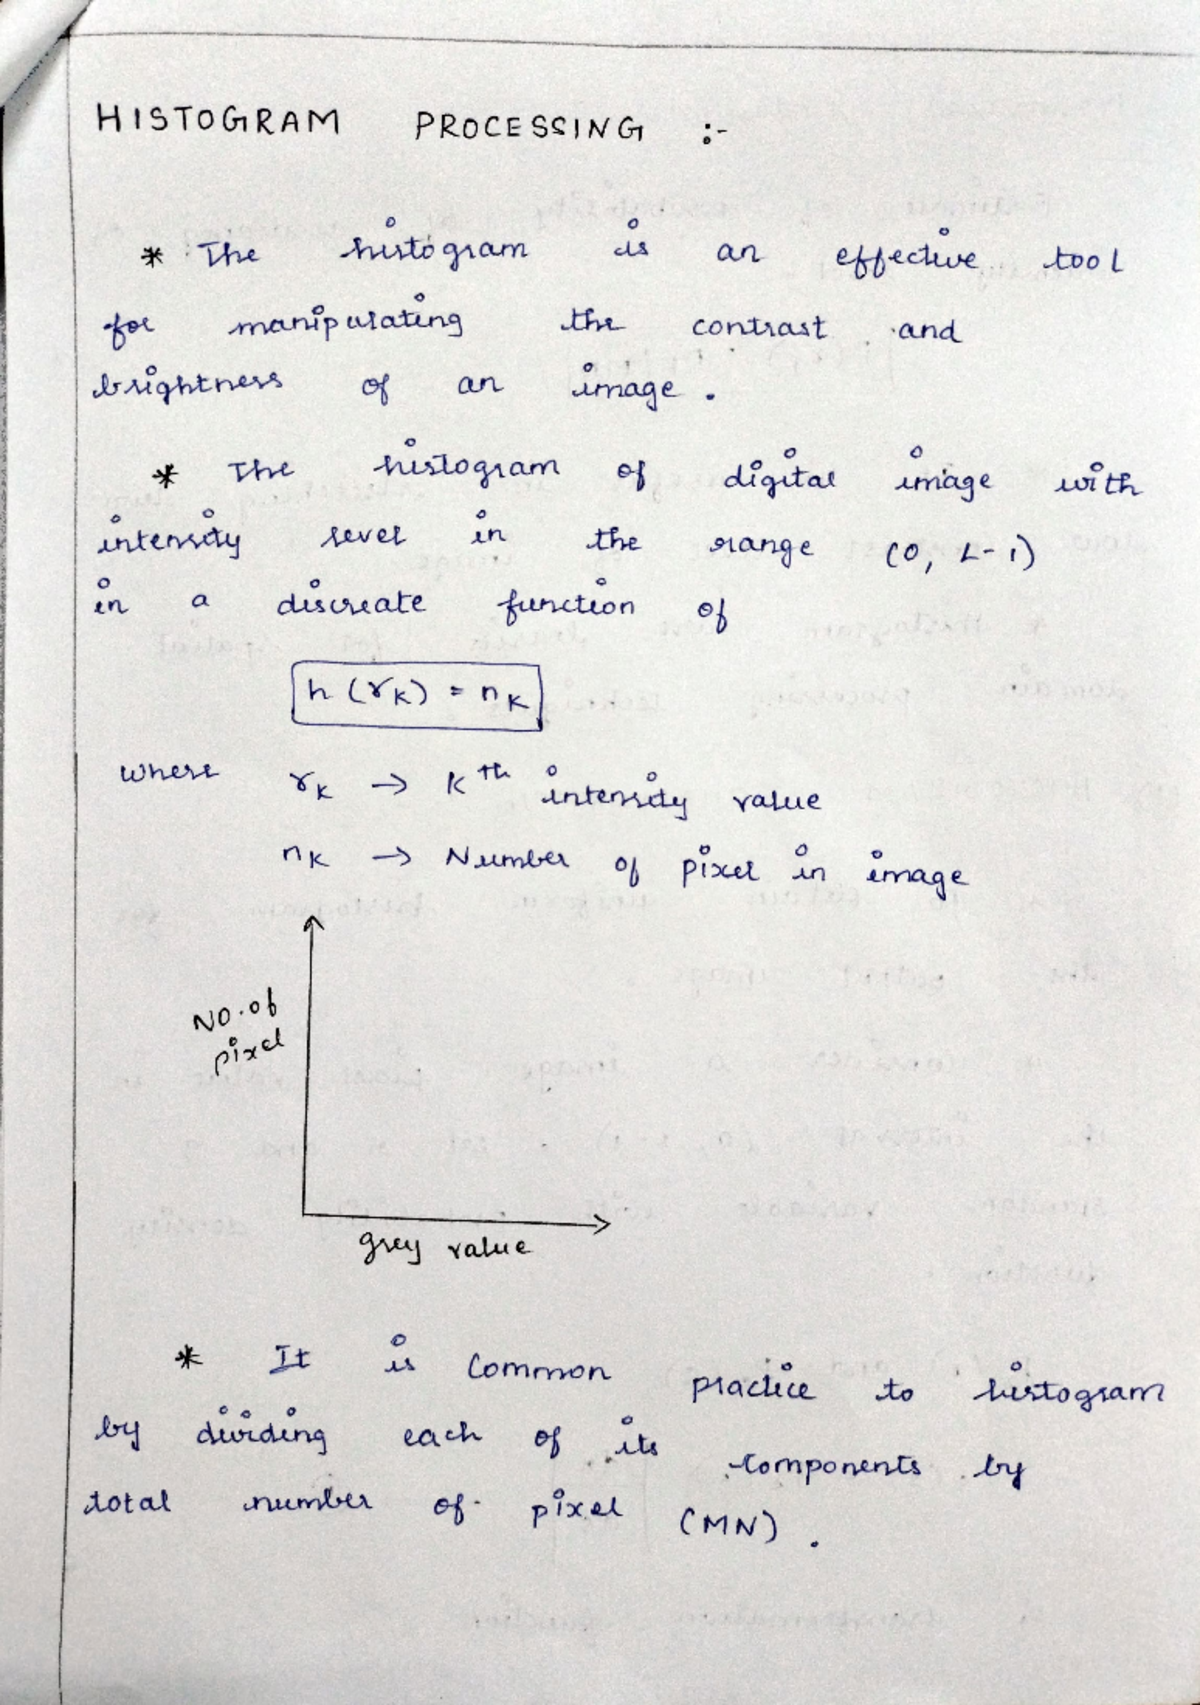 HISTOGRAM PROCESSING :-
* The histogram is an effective tool
for manipulating the contrast and
brightness of an image .
* The histogram of digital image with
intensity level in the range (0, L-1)
in a discreate function of
h (rK) = nK
where rK → Kth intensity value
nK → Number of pixel in image
NO. of
pixel
grey value
* It is common practice to histogram
by dividing each of its components by
total number of pixel (MN) .